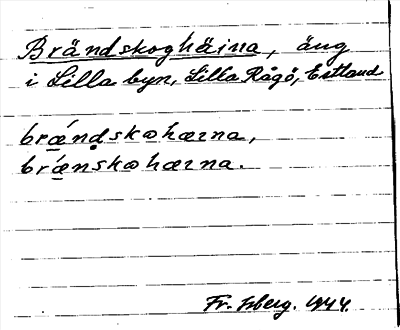 Brändskoghäina, äng
i Lilla byn, Lilla Rågö, Estland
brǽnḍskωhæɪna,
brǽnskωhæɪna.
Fr. Isberg. 1944.